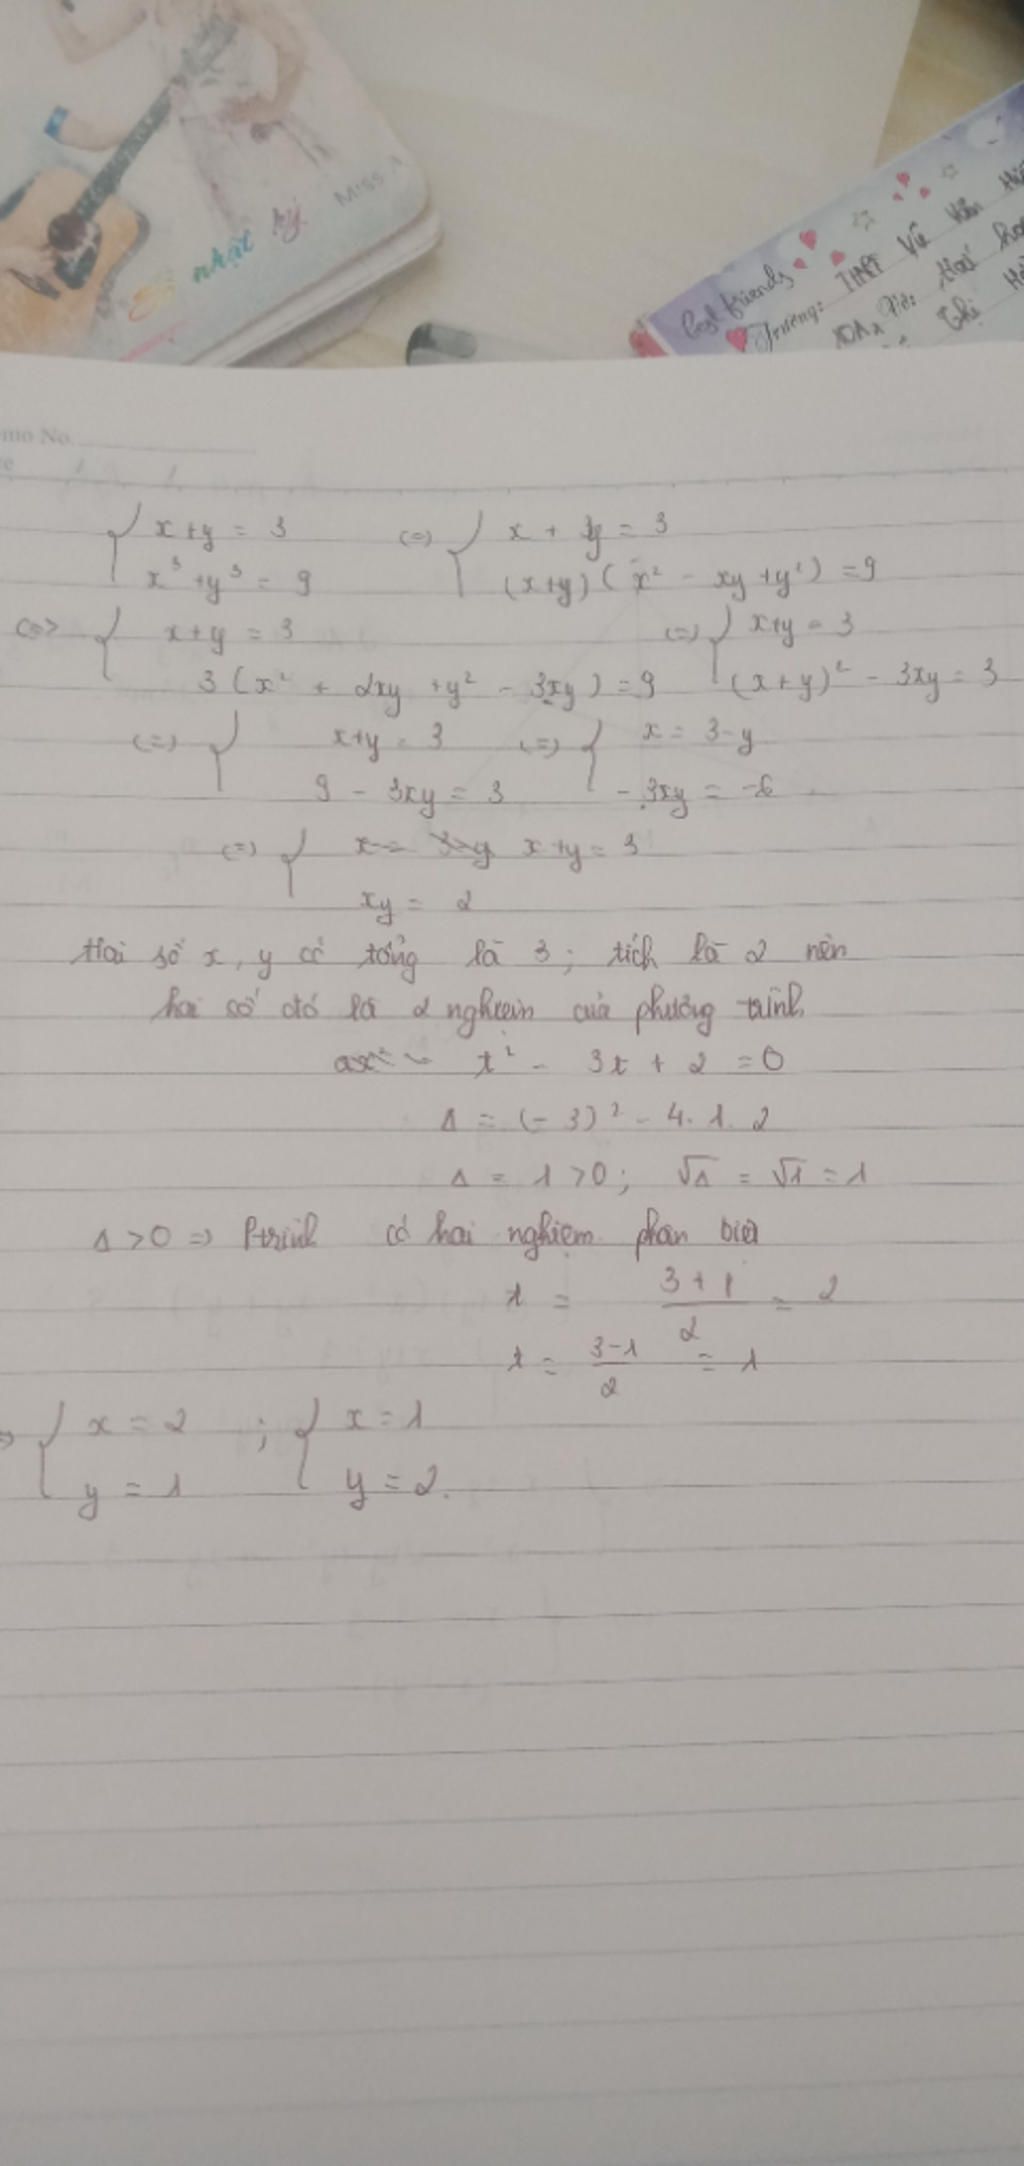 nhật ký
MISS A
Best friends
Trường: THPT Vũ Văn
10A1
Thị
mo No.
x + y = 3 <=> x + y = 3
x³ + y³ = 9 (x+y)(x² - xy + y²) = 9
<=> x + y = 3 <=> x + y = 3
3(x² + 2xy + y² - 3xy) = 9 (x+y)² - 3xy = 3
<=> x + y = 3 <=> x = 3 - y
9 - 3xy = 3 - 3xy = -6
<=> x = 3 - y x + y = 3
xy = 2
Hai số x, y có tổng là 3; tích là 2 nên
hai số đó là 2 nghiệm của phương trình
ax² t² - 3t + 2 = 0
Δ = (-3)² - 4.1.2
Δ = 1 > 0; √Δ = √1 = 1
Δ > 0 => Ptrình có hai nghiệm phân biệt
t = (3+1)/2 = 2
t = (3-1)/2 = 1
=> x = 2 ; x = 1
y = 1 y = 2.